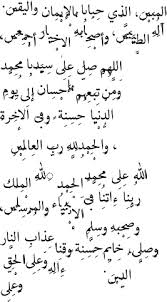 المبين، الذي حبانا بالإيمان واليقين.
آله الطيبين، وأصحابه الأخيار أجمعين،
اللهم صل على سيدنا محمد
ومن تبعهم بإحسان إلى يوم
الدنيا حسنة وفي الآخرة
، والحمد لله رب العالمين
لله على محمد الحمد لله الملك
ربنا ءاتنا في الأنبياء والمرسلين،
وصحبه وسلم
وصلى، خاتم حسنة وقنا عذاب النار
الدين ءاله وعلى الحق
وعلى